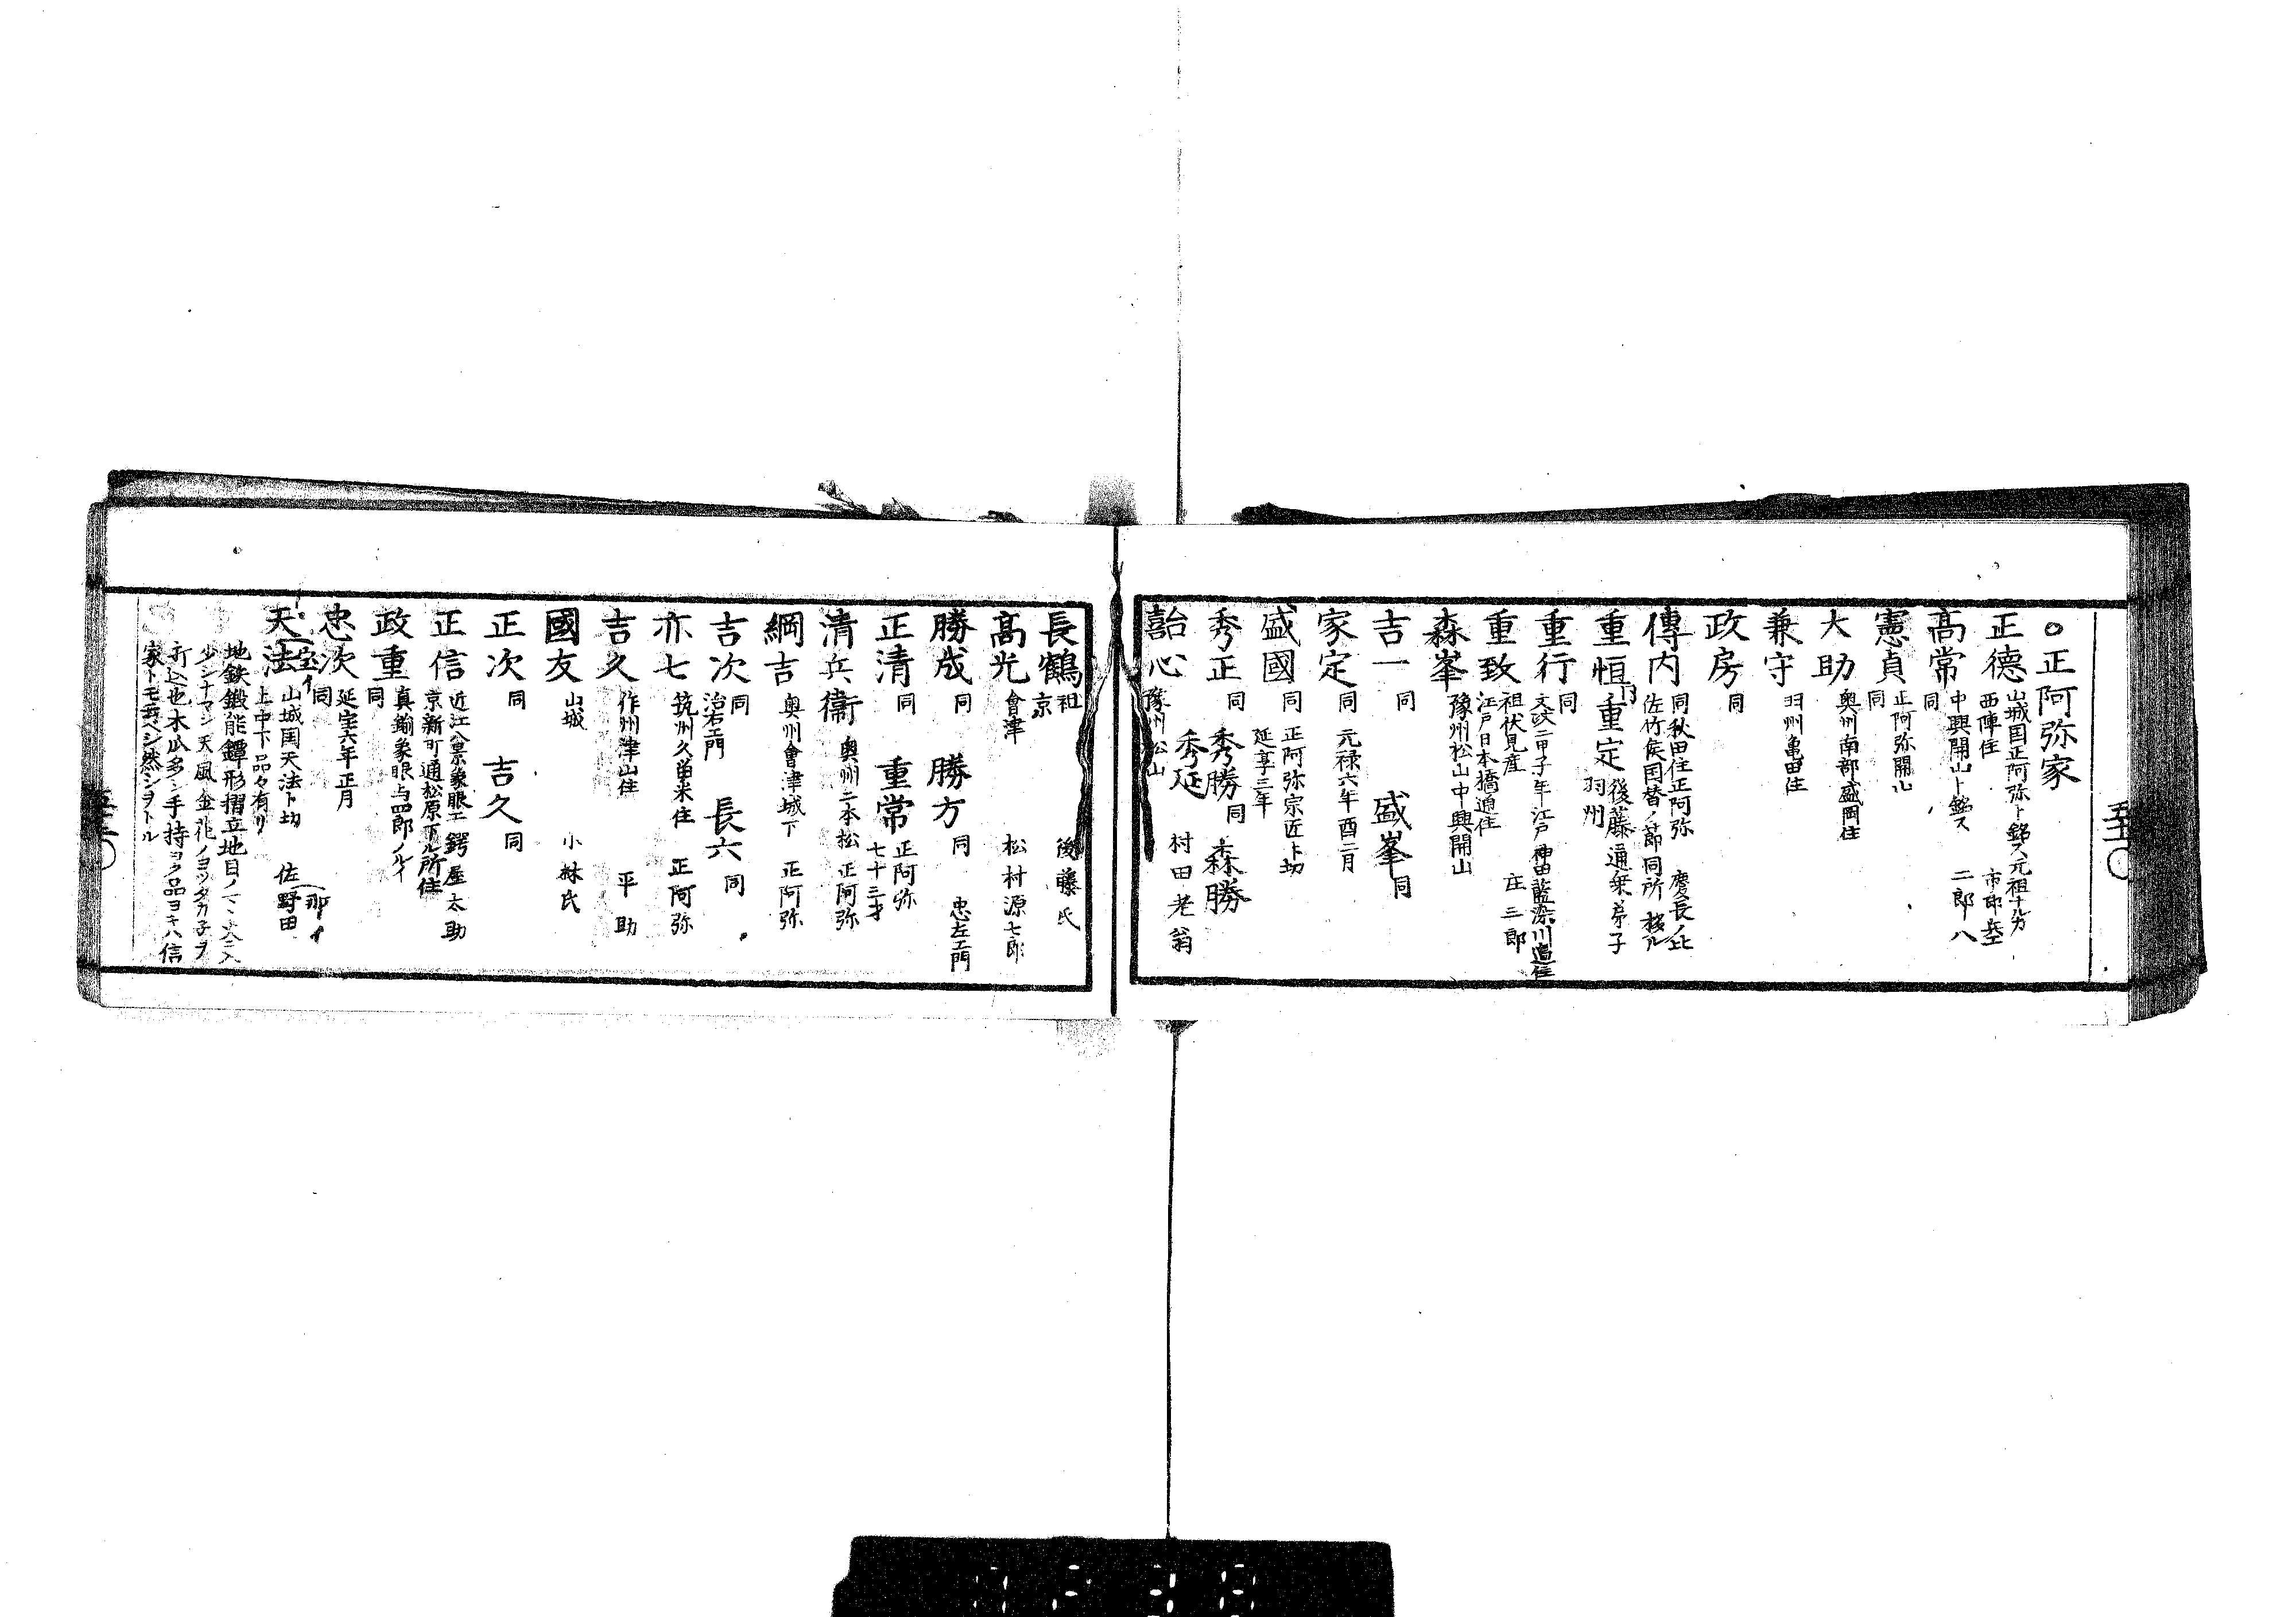 ○正阿弥家
正德 山城国正阿弥ト銘ス元祖ナル力
西陣住 市郎兵エ
高常 同
中興開山ト銘ス 二郎八
憲貞 同
正阿弥開山
大助 奥州南部盛岡住
兼守 羽州亀田住
政房 同
傳内 同秋田住正阿弥 慶長ノ比
佐竹侯国替ノ節同所移ル
重恒 重定 後藤通乗弟子
羽州
重行 同
文政二甲子年江戸神田藍染川邉住
重致 祖伏見産 庄三郎
江戸日本橋邉住
森峯 豫州松山中興開山
吉一 同 盛峯 同
家定 同 元禄六年酉二月
盛國 同 正阿弥宗匠ト切
延享三年
秀正 同 秀勝 同 森勝
秀延
豫州松山 村田老翁
長鶴 祖 後藤氏
京
高光 會津 松村源七郎
勝成 同 勝方 同 忠左エ門
正清 同 重常 正阿弥
七十三才
清兵衛 奥州二本松 正阿弥
綱吉 奥州會津城下 正阿弥
吉次 同 長六 同
治右エ門
亦七 筑州久留米住 正阿弥
吉久 作州津山住 平助
國友 山城 小林氏
正次 同 吉久 同
正信 近江八景象眼工 鍔屋太助
京新町通松原下ル所住
政重 同
真鍮象眼与四郎ノルイ
忠次 同
延宝六年正月
天法 山城国天法ト切 佐野田
宝イ 那イ
上中下品々有リ
地鉄鍛能鐔形摺立地目ノ
少シナマシ天風金花ノヨツタカ子ヲ
打込也木瓜多シ手持ヨク品ヨキハ信
家トモ云ベシ然シヲトル